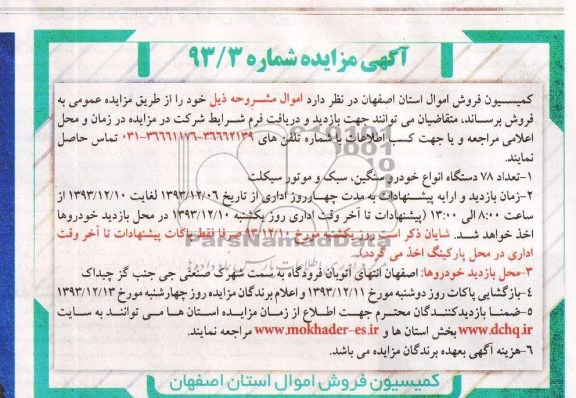 آگهی مزایده شماره ۹۳/۳
کمیسیون فروش اموال استان اصفهان در نظر دارد اموال مشروحه ذیل خود را از طریق مزایده عمومی به
فروش برساند، متقاضیان می توانند جهت بازدید و دریافت فرم شرایط شرکت در مزایده در زمان و محل
اعلامی مراجعه و یا جهت کسب اطلاعات با شماره تلفن های ۳۶۶۶۲۱۳۹-۳۶۶۶۱۱۷۶-۰۳۱ تماس حاصل
نمایند.
۱-تعداد ۷۸ دستگاه انواع خودرو سنگین، سبک و موتور سیکلت
۲-زمان بازدید و ارایه پیشنهادات به مدت چهارروز اداری از تاریخ ۱۳۹۳/۱۲/۰۶ لغایت ۱۳۹۳/۱۲/۱۰ از
ساعت ۸:۰۰ الی ۱۳:۰۰ (پیشنهادات تا آخر وقت اداری روز یکشنبه ۱۳۹۳/۱۲/۱۰ در محل بازدید خودروها
اخذ خواهد شد. شایان ذکر است روز یکشنبه مورخ ۹۳/۱۲/۱۰ صرفا فقط پاکات پیشنهادات تا آخر وقت
اداری در محل پارکینگ اخذ می گردد).
۳-محل بازدید خودروها: اصفهان انتهای اتوبان فرودگاه به سمت شهرک صنعتی جی جنب گز چیداک
۴-بازگشایی پاکات روز دوشنبه مورخ ۱۳۹۳/۱۲/۱۱ و اعلام برندگان مزایده روز چهارشنبه مورخ ۱۳۹۳/۱۲/۱۳
۵-ضمنا بازدیدکنندگان محترم جهت اطلاع از زمان مزایده استان ها می توانند به سایت
www.dchq.ir بخش استان ها و www.mokhader-es.ir مراجعه نمایند.
۶-هزینه آگهی بعهده برندگان مزایده می باشد.
کمیسیون فروش اموال استان اصفهان
ParsNamadData